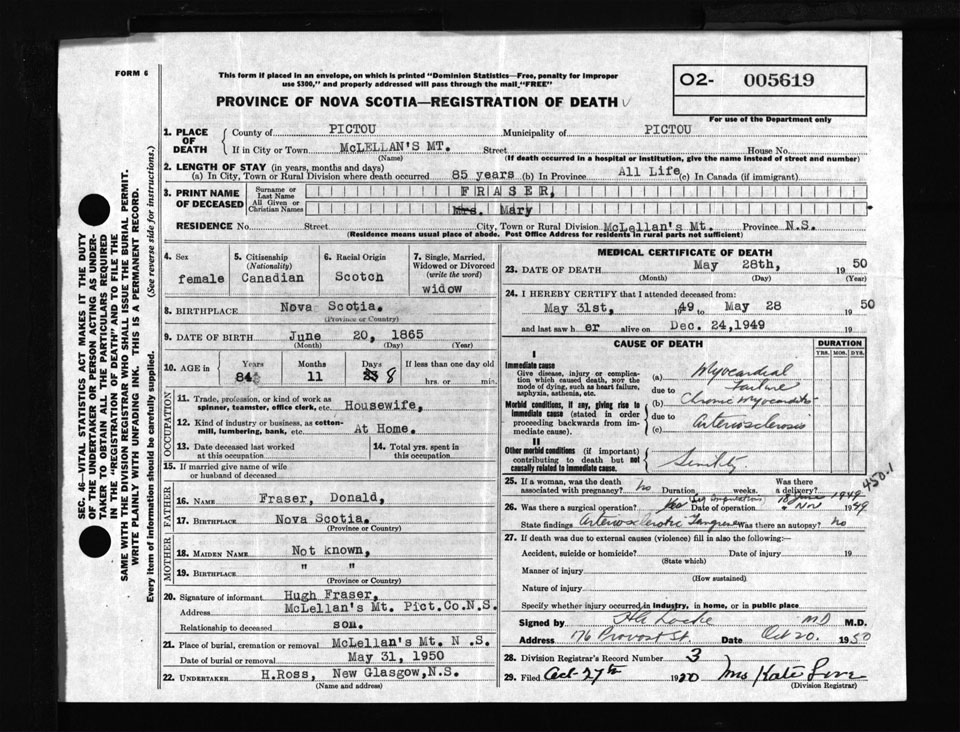 FORM 6
This form if placed in an envelope, on which is printed "Dominion Statistics—Free, penalty for improper
use $300," and properly addressed will pass through the mail "FREE"
O2- 005619
PROVINCE OF NOVA SCOTIA—REGISTRATION OF DEATH
For use of the Department only
1. PLACE OF DEATH
County of PICTOU Municipality of PICTOU
If in City or Town McLELLAN'S MT. Street House No.
(Name) (If death occurred in a hospital or institution, give the name instead of street and number)
2. LENGTH OF STAY (in years, months and days)
(a) In City, Town or Rural Division where death occurred 85 years (b) In Province All Life (c) In Canada (if immigrant)
3. PRINT NAME OF DECEASED
Surname or Last Name FRASER,
All Given or Christian Names Mrs. Mary
RESIDENCE No. Street City, Town or Rural Division McLellan's Mt. Province N.S.
(Residence means usual place of abode. Post Office Address for residents in rural parts not sufficient)
4. Sex female
5. Citizenship (Nationality) Canadian
6. Racial Origin Scotch
7. Single, Married, Widowed or Divorced (write the word) widow
8. BIRTHPLACE Nova Scotia.
(Province or Country)
9. DATE OF BIRTH June 20, 1865
(Month) (Day) (Year)
10. AGE in Years Months Days If less than one day old
84 11 8 hrs. or min.
OCCUPATION
11. Trade, profession, or kind of work as
spinner, teamster, office clerk, etc. Housewife,
12. Kind of industry or business, as cotton-
mill, lumbering, bank, etc. At Home.
13. Date deceased last worked
at this occupation
14. Total yrs. spent in
this occupation
15. If married give name of wife
or husband of deceased
FATHER
16. NAME Fraser, Donald,
17. BIRTHPLACE Nova Scotia.
(Province or Country)
MOTHER
18. MAIDEN NAME Not known,
19. BIRTHPLACE " "
(Province or Country)
20. Signature of informant Hugh Fraser,
Address McLellan's Mt. Pict.Co.N.S.
Relationship to deceased son.
21. Place of burial, cremation or removal McLellan's Mt. N .S.
Date of burial or removal May 31, 1950
22. UNDERTAKER H.Ross, New Glasgow,N.S.
(Name and address)
MEDICAL CERTIFICATE OF DEATH
23. DATE OF DEATH May 28th, 1950
(Month) (Day) (Year)
24. I HEREBY CERTIFY that I attended deceased from:
May 31st, 1949 to May 28 1950
and last saw h er alive on Dec. 24,1949 19
CAUSE OF DEATH
DURATION
YRS. MOS. DYS.
I
Immediate cause
Give disease, injury or complica-
tion which caused death, NOT the
mode of dying, such as heart failure,
asphyxia, asthenia, etc.
(a) Myocardial
Failure
due to
Morbid conditions, if any, giving rise to
immediate cause (stated in order
proceeding backwards from im-
mediate cause).
(b) Chronic Myocarditis
due to
(c) Arteriosclerosis
II
Other morbid conditions (if important)
contributing to death but not
causally related to immediate cause.
Senility
450.1
25. If a woman, was the death
associated with pregnancy? no Duration, weeks. Was there
a delivery?
26. Was there a surgical operation? Yes Date of operation Nov 1949
18 June 1949
State findings Arteriosclerotic Gangrene Was there an autopsy? no
27. If death was due to external causes (violence) fill in also the following:—
Accident, suicide or homicide? Date of injury 19
(State which)
Manner of injury
(How sustained)
Nature of injury
Specify whether injury occurred in industry, in home, or in public place
Signed by Locke MD M.D.
Address 176 Provost St. Date Oct 20. 1950
28. Division Registrar's Record Number 3
29. Filed Oct-27th 1950 Mrs Kate
(Division Registrar)
SEC. 46—VITAL STATISTICS ACT MAKES IT THE DUTY
OF THE UNDERTAKER OR PERSON ACTING AS UNDER-
TAKER TO OBTAIN ALL THE PARTICULARS REQUIRED
IN THE "REGISTRATION OF DEATH" AND TO FILE THE
SAME WITH THE DIVISION REGISTRAR WHO SHALL ISSUE THE BURIAL PERMIT.
WRITE PLAINLY WITH UNFADING INK. THIS IS A PERMANENT RECORD.
Every item of information should be carefully supplied. (See reverse side for instructions.)